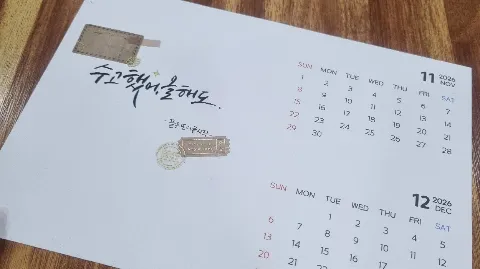 수고했어, 올해도.
11 2026 NOV
SUN MON TUE WED THU FRI SAT
1 2 3 4 5 6 7
8 9 10 11 12 13 14
15 16 17 18 19 20 21
22 23 24 25 26 27 28
29 30
12 2026 DEC
SUN MON TUE WED THU FRI SAT
1 2 3 4 5
6 7 8 9 10 11 12
13 14 15 16 17 18 19
20 21 22